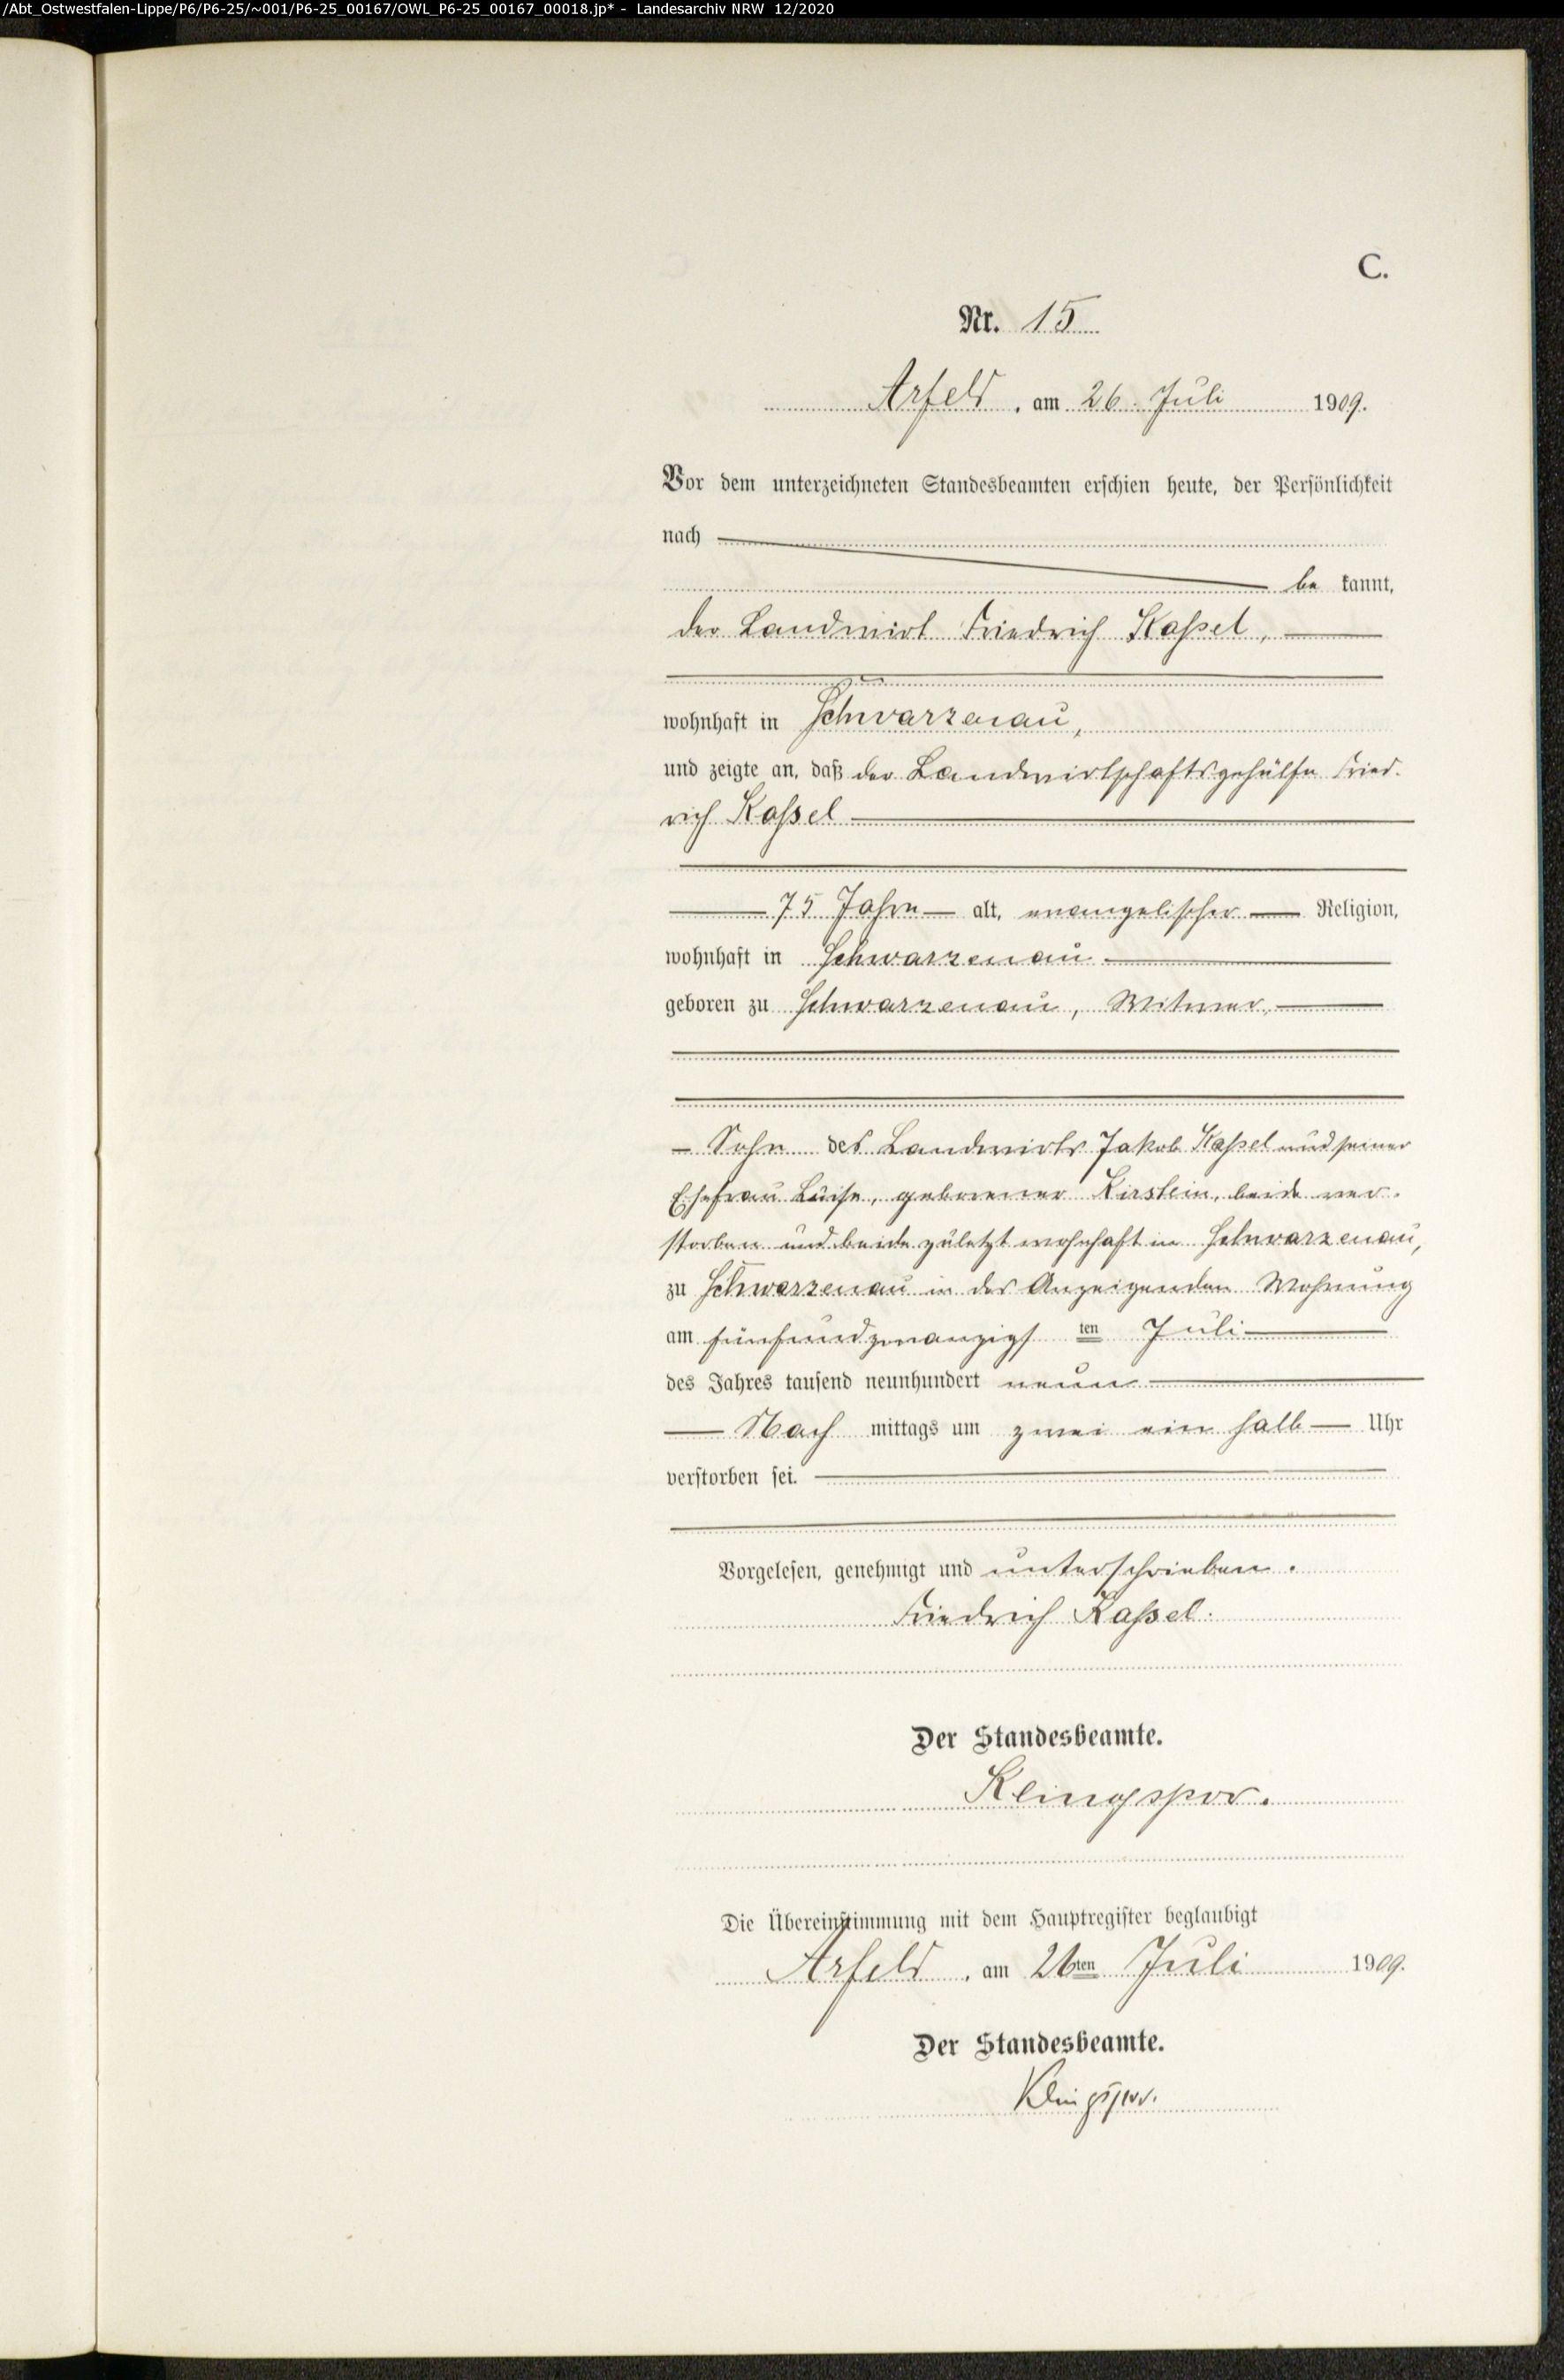 /Abt_Ostwestfalen-Lippe/P6/P6-25/~001/P6-25_00167/OWL_P6-25_00167_00018.jp* - Landesarchiv NRW 12/2020
C.
Nr. 15
Arfeld, am 26. Juli 1909.
Vor dem unterzeichneten Standesbeamten erschien heute, der Persönlichkeit
nach
be kannt,
der Landwirt Friedrich Kaßel,
wohnhaft in Schwarzenau,
und zeigte an, daß der Landwirtschaftsgehülfe Fried-
rich Kaßel
75 Jahre alt, evangelischer Religion,
wohnhaft in Schwarzenau
geboren zu Schwarzenau, Witwer,
Sohn des Landwirts Jakob Kaßel und seiner
Ehefrau Luise, geborener Kirstein, beide ver-
storben und beide zuletzt wohnhaft in Schwarzenau,
zu Schwarzenau in des Anzeigenden Wohnung
am fünfundzwanzigs ten Juli
des Jahres tausend neunhundert neun
Nach mittags um zwei ein halb Uhr
verstorben sei.
Vorgelesen, genehmigt und unterschrieben.
Friedrich Kaßel.
Der Standesbeamte.
Klingspor.
Die Übereinstimmung mit dem Hauptregister beglaubigt
Arfeld, am 26ten Juli 1909.
Der Standesbeamte.
Klingspor.